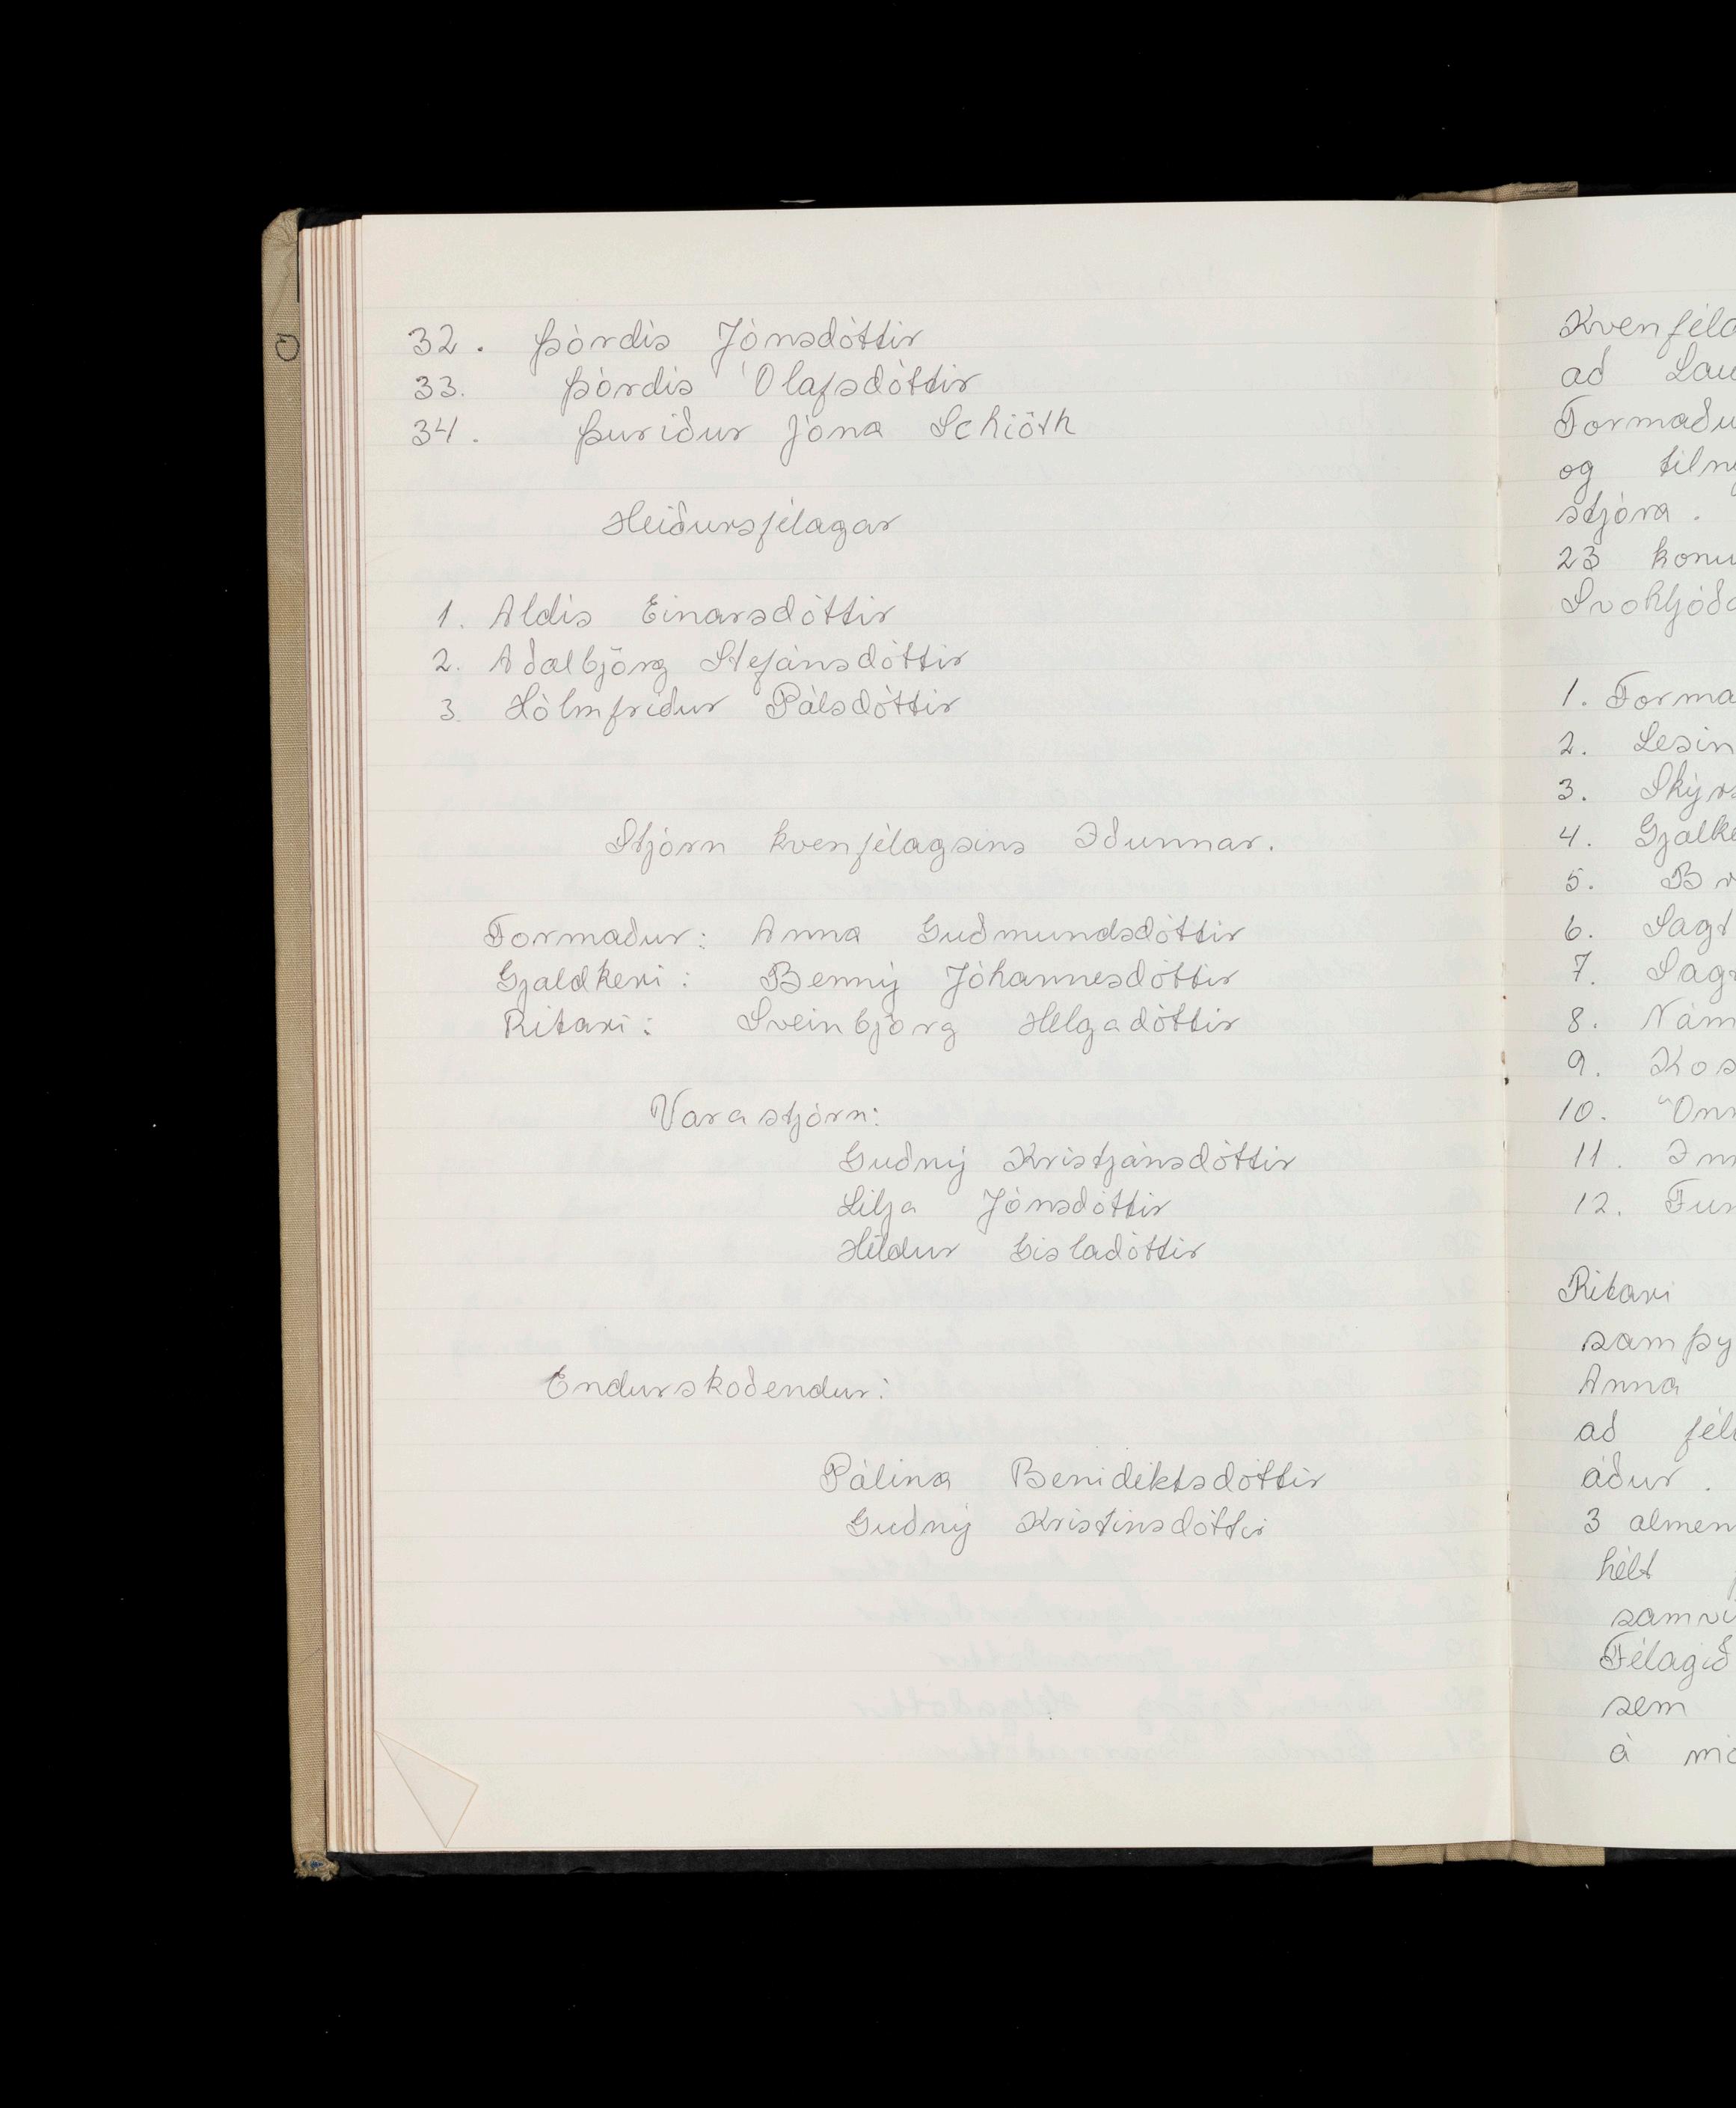 32. Þórdís Jónsdóttir
33. Þórdís Ólafsdóttir
34. Þuríður Jóna Schiöth
Heiðursfélagar
1. Aldís Einarsdóttir
2. Aðalbjörg Stefánsdóttir
3. Hólmfríður Pálsdóttir
Stjórn kvenfélagsins Iðunnar.
Formaður: Anna Guðmundsdóttir
Gjaldkeri: Benný Jóhannesdóttir
Ritari: Sveinbjörg Helgadóttir
Varastjórn:
Guðný Kristjánsdóttir
Lilja Jónsdóttir
Hildur Gísladóttir
Endurskoðendur:
Pálína Benidiktsdóttir
Guðný Kristinsdóttir
Kvenféla
að Lau
Formaðu
og tiln
stjóra.
23 konu
Svohljóða
1. Forma
2. Lesin
3. Skýrs
4. Gjalke
5. Br
6. Sagt
7. Sagt
8. Nám
9. Kos
10. Önn
11. Inn
12. Fun
Ritari
samþy
Anna
að féla
áður.
3 almen
hélt
samvi
Félagið
sem
á mið